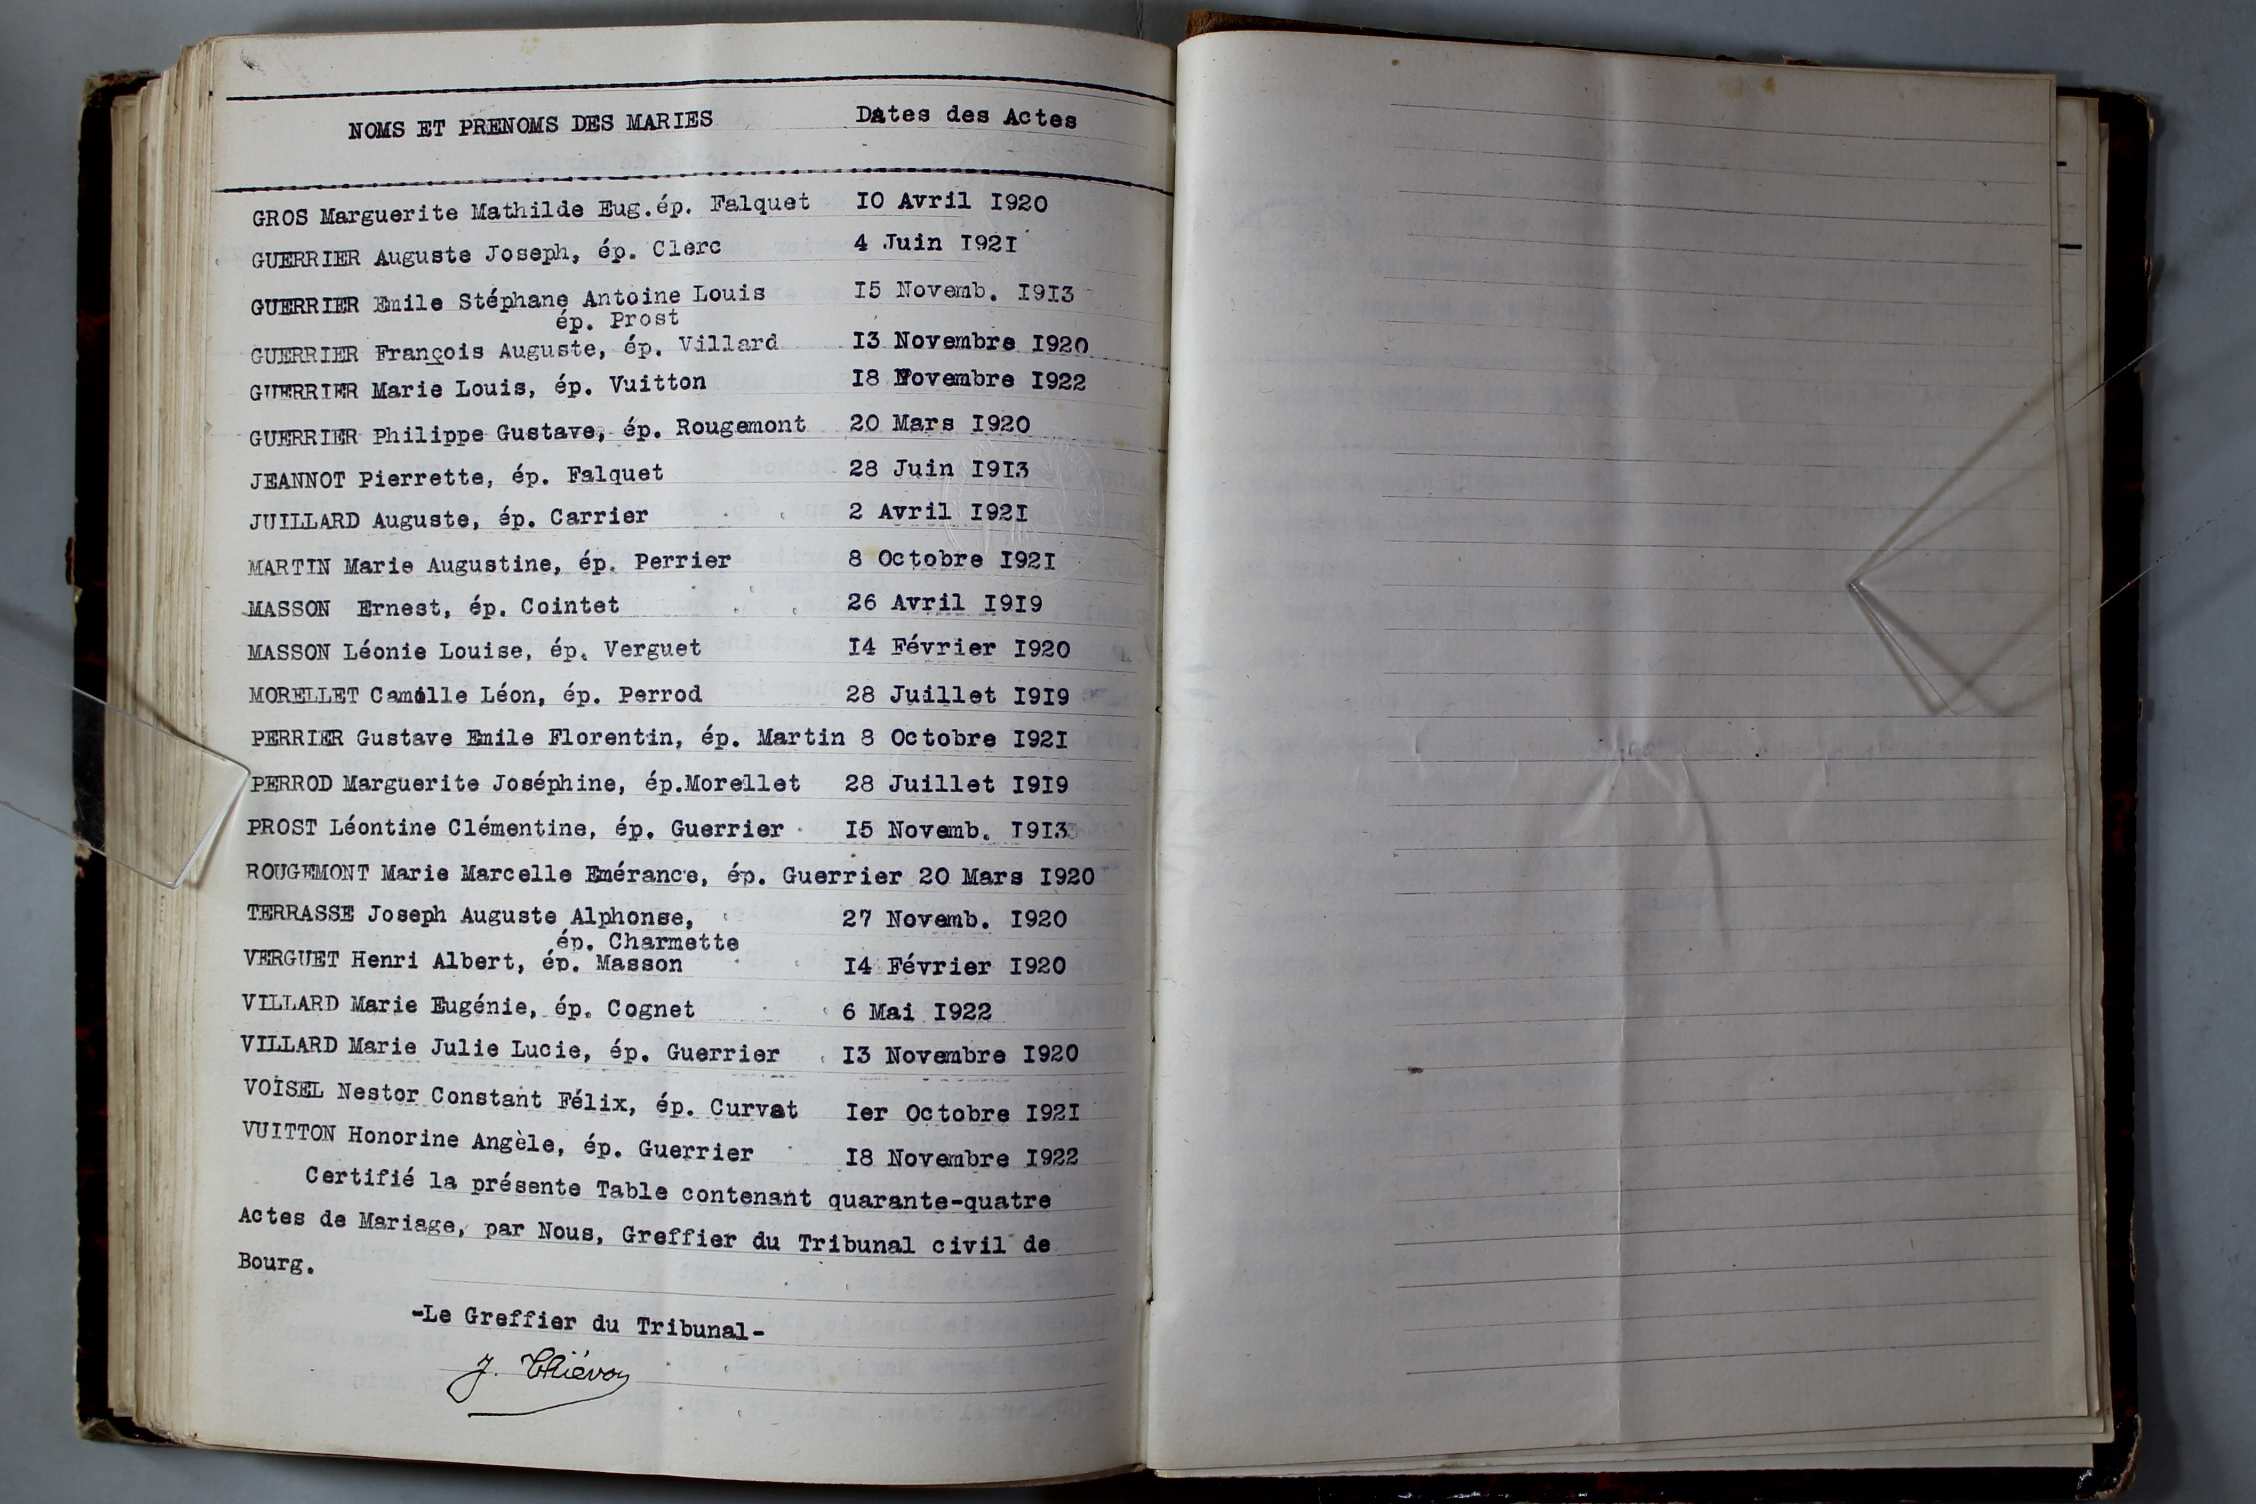 NOMS ET PRENOMS DES MARIES Dates des Actes
GROS Marguerite Mathilde Eug.ép. Falquet IO Avril I920
GUERRIER Auguste Joseph, ép. Clerc 4 Juin I92I
GUERRIER Emile Stéphane Antoine Louis I5 Novemb. I9I3
ép. Prost
GUERRIER François Auguste, ép. Villard I3 Novembre I920
GUERRIER Marie Louis, ép. Vuitton I8 Novembre I922
GUERRIER Philippe Gustave, ép. Rougemont 20 Mars I920
JEANNOT Pierrette, ép. Falquet 28 Juin I9I3
JUILLARD Auguste, ép. Carrier 2 Avril I92I
MARTIN Marie Augustine, ép. Perrier 8 Octobre I92I
MASSON Ernest, ép. Cointet 26 Avril I9I9
MASSON Léonie Louise, ép. Verguet I4 Février I920
MORELLET Camille Léon, ép. Perrod 28 Juillet I9I9
PERRIER Gustave Emile Florentin, ép. Martin 8 Octobre I92I
PERROD Marguerite Joséphine, ép.Morellet 28 Juillet I9I9
PROST Léontine Clémentine, ép. Guerrier I5 Novemb. I9I3
ROUGEMONT Marie Marcelle Emérance, ép. Guerrier 20 Mars I920
TERRASSE Joseph Auguste Alphonse, 27 Novemb. I920
ép. Charmette
VERGUET Henri Albert, ép. Masson I4 Février I920
VILLARD Marie Eugénie, ép. Cognet 6 Mai I922
VILLARD Marie Julie Lucie, ép. Guerrier I3 Novembre I920
VOISEL Nestor Constant Félix, ép. Curvat Ier Octobre I92I
VUITTON Honorine Angèle, ép. Guerrier I8 Novembre I922
Certifié la présente Table contenant quarante-quatre
Actes de Mariage, par Nous, Greffier du Tribunal civil de
Bourg.
-Le Greffier du Tribunal-
J. Thiévon